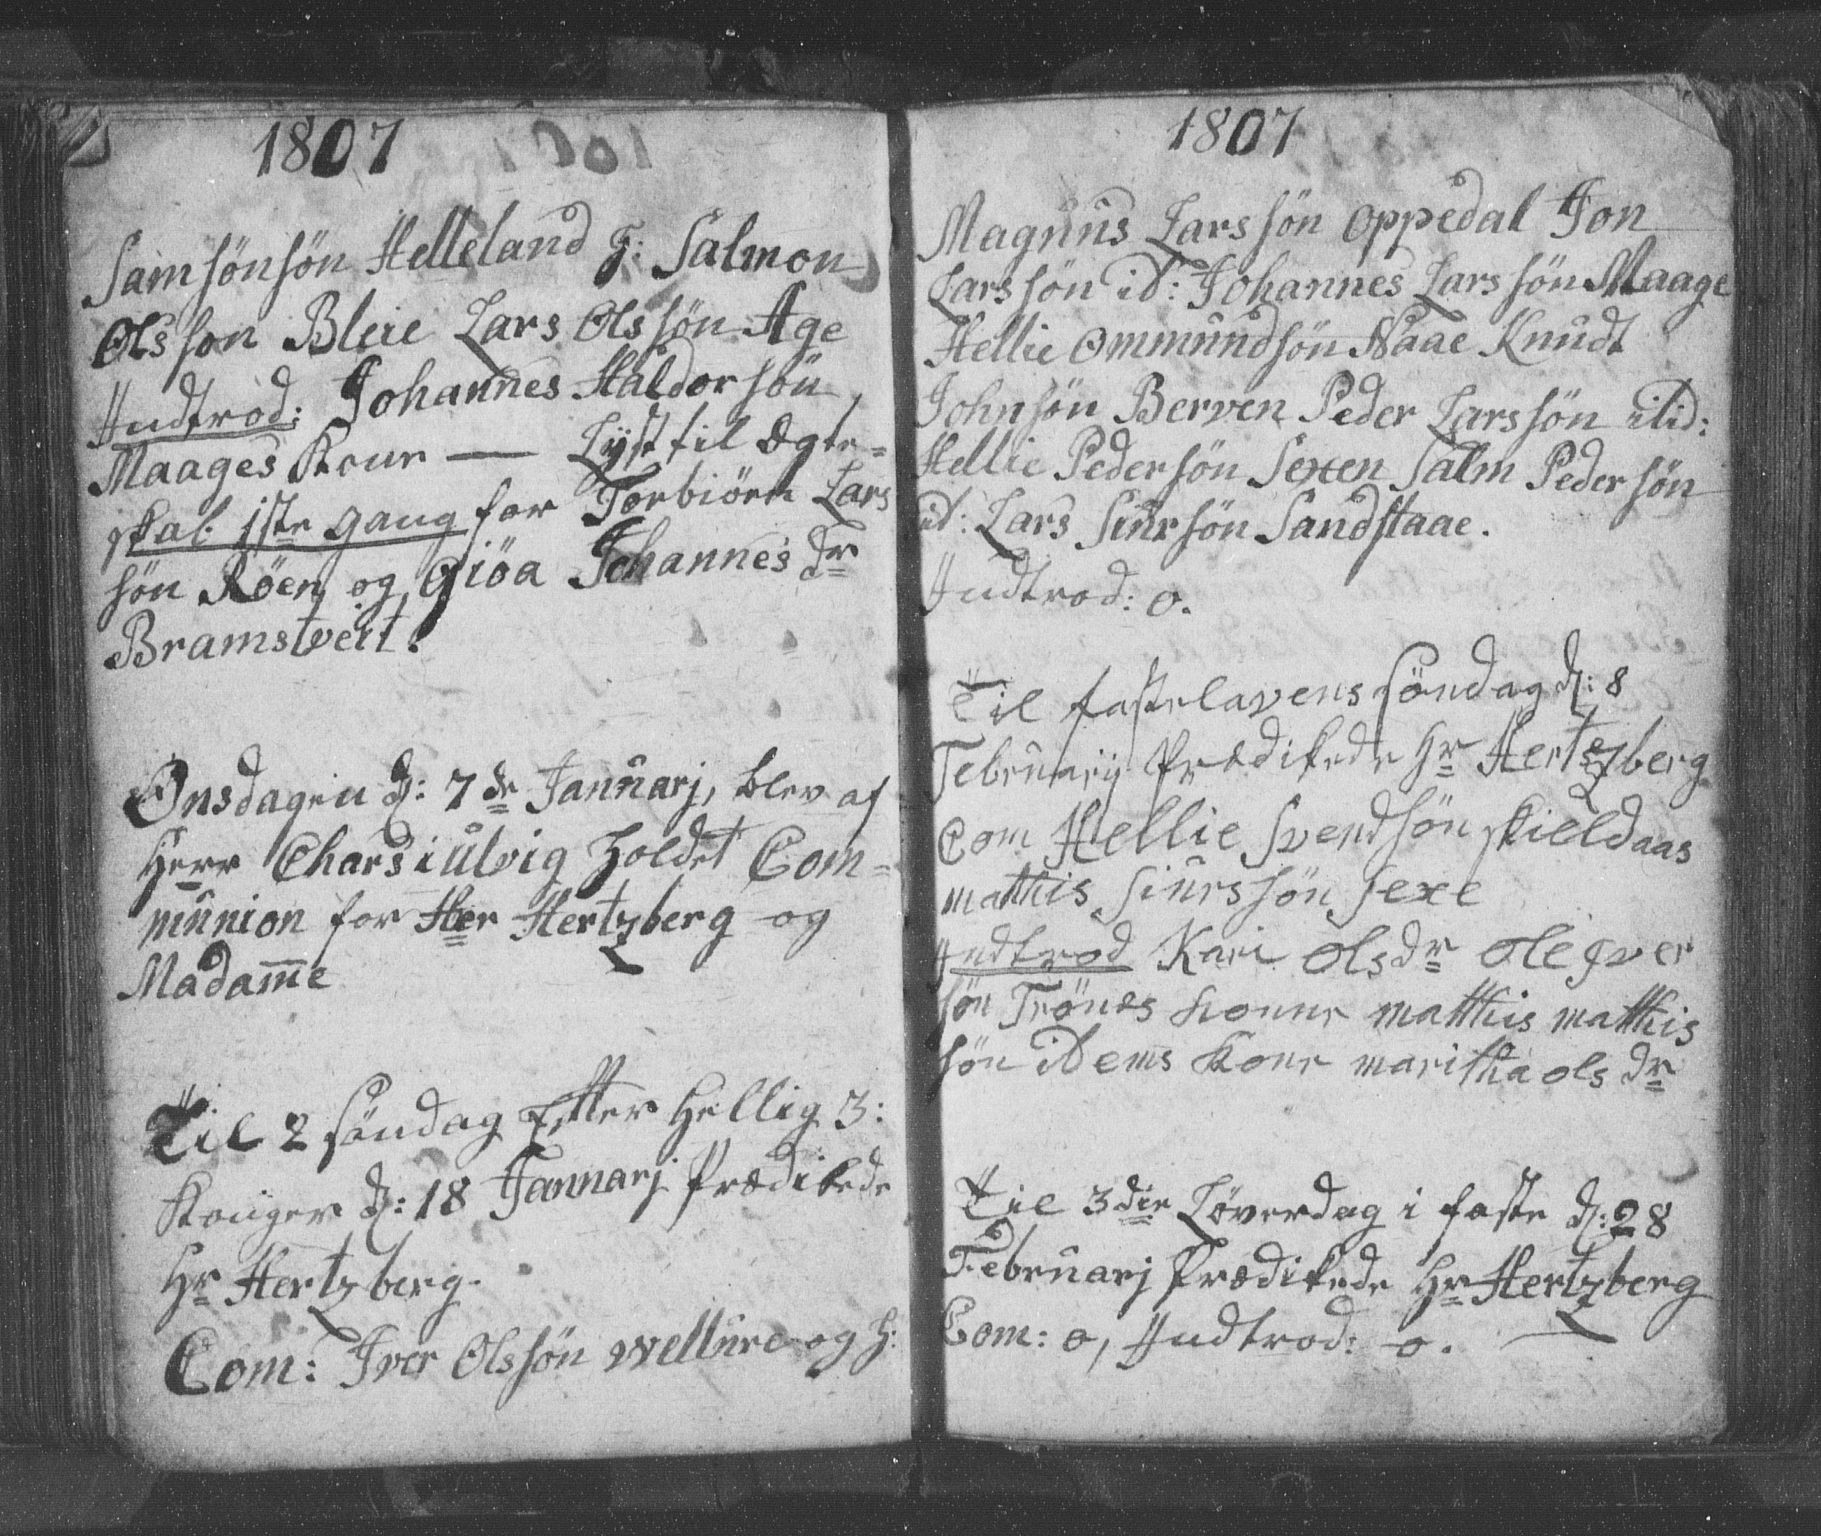 1807
Samsönsön Helleland F: Salmon
Olsson Bleie Lars Olssön Age
Indtrod: Johannes Haldorsön
Maages Kone — Lyst til Ægte=
skab 1ste gang for Torbiörn Lars
sön Röen og Giöa Johannes dr
Bramstveit.
Onsdagen d: 7de Januarj, blev af
Herr Chars i Ulvig Holdet Com=
munion for Her Hertzberg og
Madame
Til 2 söndag Efter Hellig 3:
Konger d: 18 Januarj Prædikede
Hr Hertzberg.
Com: Iver Olssön Wellure og H:
1807
Magnus Larssön Oppedal Jon
Larssön id: Johannes Larssön Maage
Hellie Ommundsön Naae Knudt
Johnsön Berven Peder Larssön itid:
Hellie Pedersön Sexen Salm Pedersön
id: Lars Siursön Sandstaae.
Indtrod: o.
Til fastelavens söndag d: 8
Februarij Prædikede Hr Hertzberg
Com Hellie Svendsön Skieldaas
Mathis Siurssön Sexe
Indtrod Kari Olsdr Ole Iver
sön Trönes Konne Matthis Matthis
sön idems Kone Maritha Ols dr
Til 3die Löverdag i faste d: 28
Februarj Prædikede Hr Hertzberg
Com: o, Indtrod: o. —